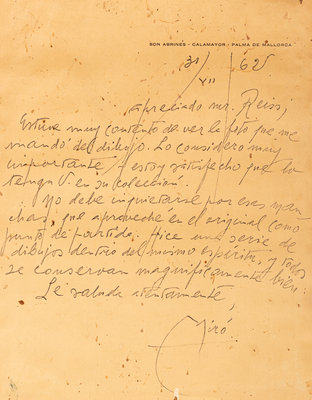 SON ABRINES - CALAMAYOR - PALMA DE MALLORCA
31/VII/62
Apreciado mr. Reiss,
Estuve muy contento de ver la foto que me
mandó del dibujo. Lo considero muy
importante y estoy satisfecho que lo
tenga V. en su colección.
No debe inquietarse por esas man
chas, que aproveché en el original como
punto de partida. Hice una serie de
dibujos dentro del mismo espíritu, y todos
se conservan magníficamente bien.
Le saluda atentamente,
Miró.